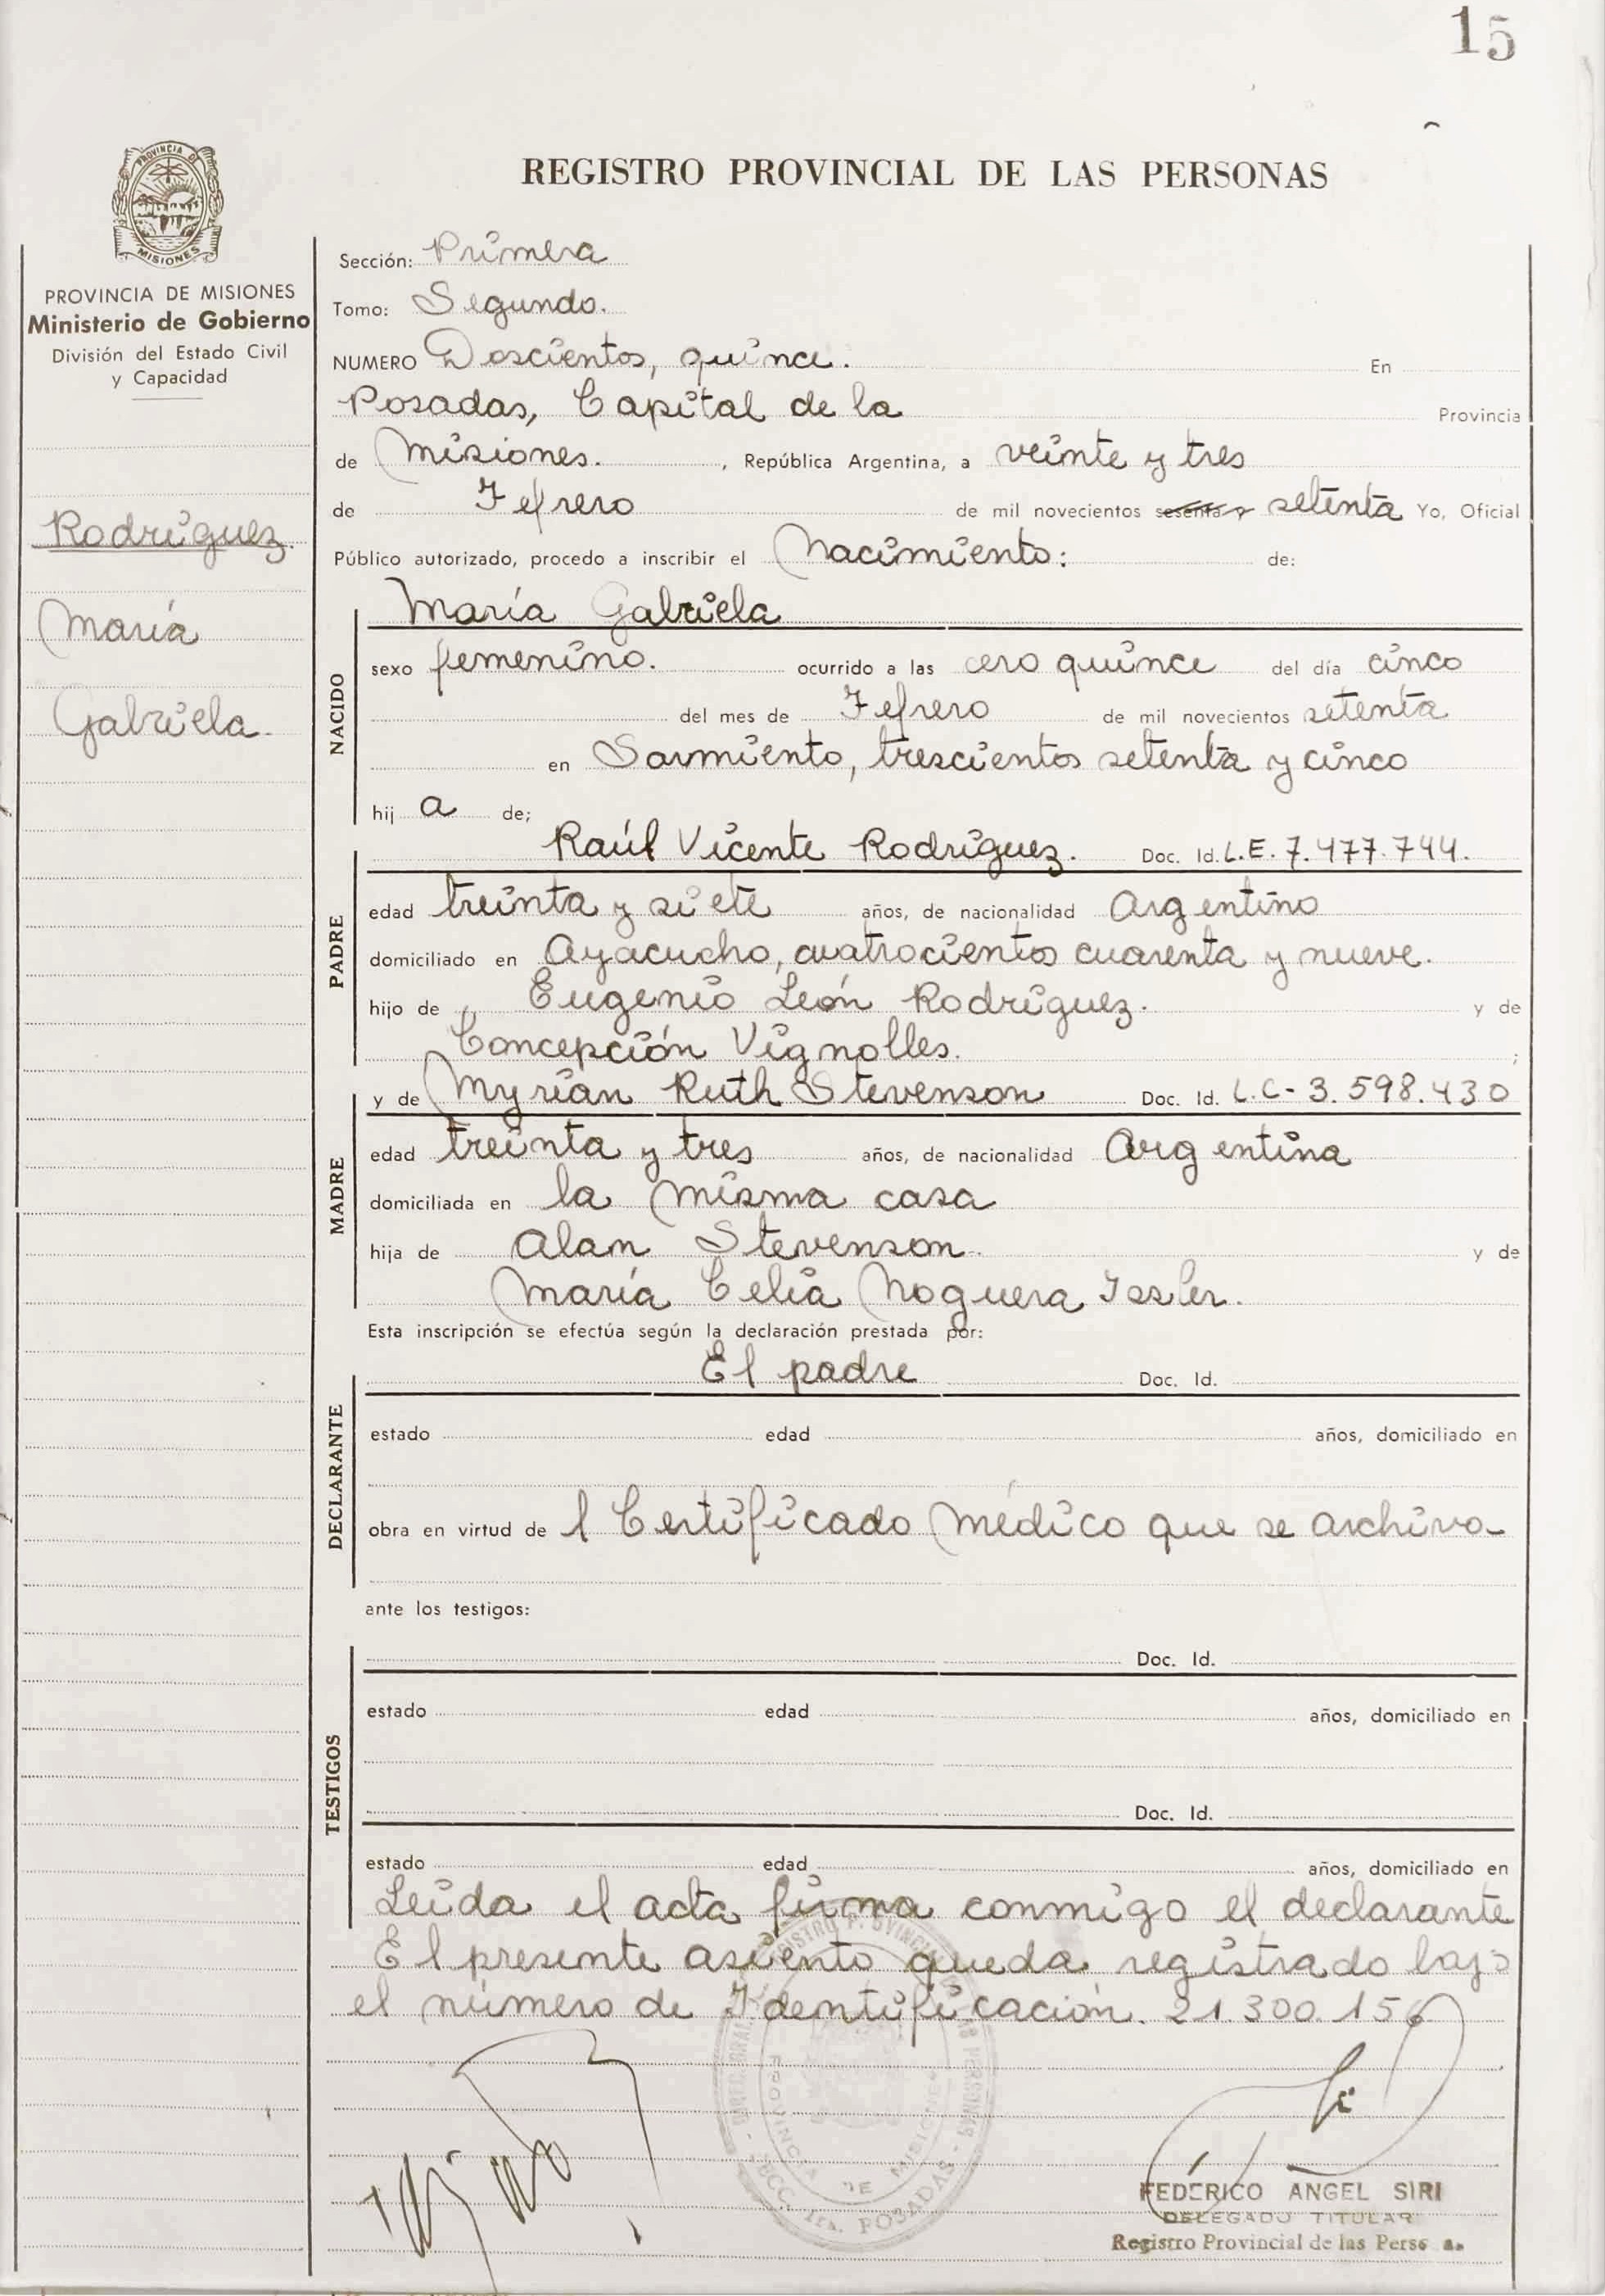 15
REGISTRO PROVINCIAL DE LAS PERSONAS
PROVINCIA DE
MISIONES
PROVINCIA DE MISIONES
Ministerio de Gobierno
División del Estado Civil
y Capacidad
Rodríguez.
María
Gabriela.
Sección: Primera
Tomo: Segundo.
NUMERO Doscientos, quince. En
Posadas, Capital de la Provincia
de Misiones. , República Argentina, a veinte y tres
de Febrero de mil novecientos sesenta y setenta Yo, Oficial
Público autorizado, procedo a inscribir el Nacimiento: de:
NACIDO
María Gabriela
sexo femenino. ocurrido a las cero quince del día cinco
del mes de Febrero de mil novecientos setenta
en Sarmiento, trescientos setenta y cinco
hij a de;
PADRE
Raúl Vicente Rodríguez. Doc. Id. L.E. 7.477.744.
edad treinta y siete años, de nacionalidad Argentino
domiciliado en Ayacucho, cuatrocientos cuarenta y nueve.
hijo de Eugenio León Rodríguez. y de
Concepción Vignolles. ;
MADRE
y de Myrian Ruth Stevenson Doc. Id. L.C- 3.598.430
edad treinta y tres años, de nacionalidad Argentina
domiciliada en la misma casa
hija de Alan Stevenson. y de
María Celia Noguera Issler.
Esta inscripción se efectúa según la declaración prestada por:
DECLARANTE
El padre Doc. Id.
estado edad años, domiciliado en
obra en virtud de l Certificado Médico que se archiva
ante los testigos:
TESTIGOS
Doc. Id.
estado edad años, domiciliado en
Doc. Id.
estado edad años, domiciliado en
Leída el acta firma conmigo el declarante
El presente asiento queda registrado bajo
el número de Identificación. 21.300.156
PROVINCIA DE MISIONES
SECC. 1ra. POSADAS
FEDERICO ANGEL SIRI
DELEGADO TITULAR
Registro Provincial de las